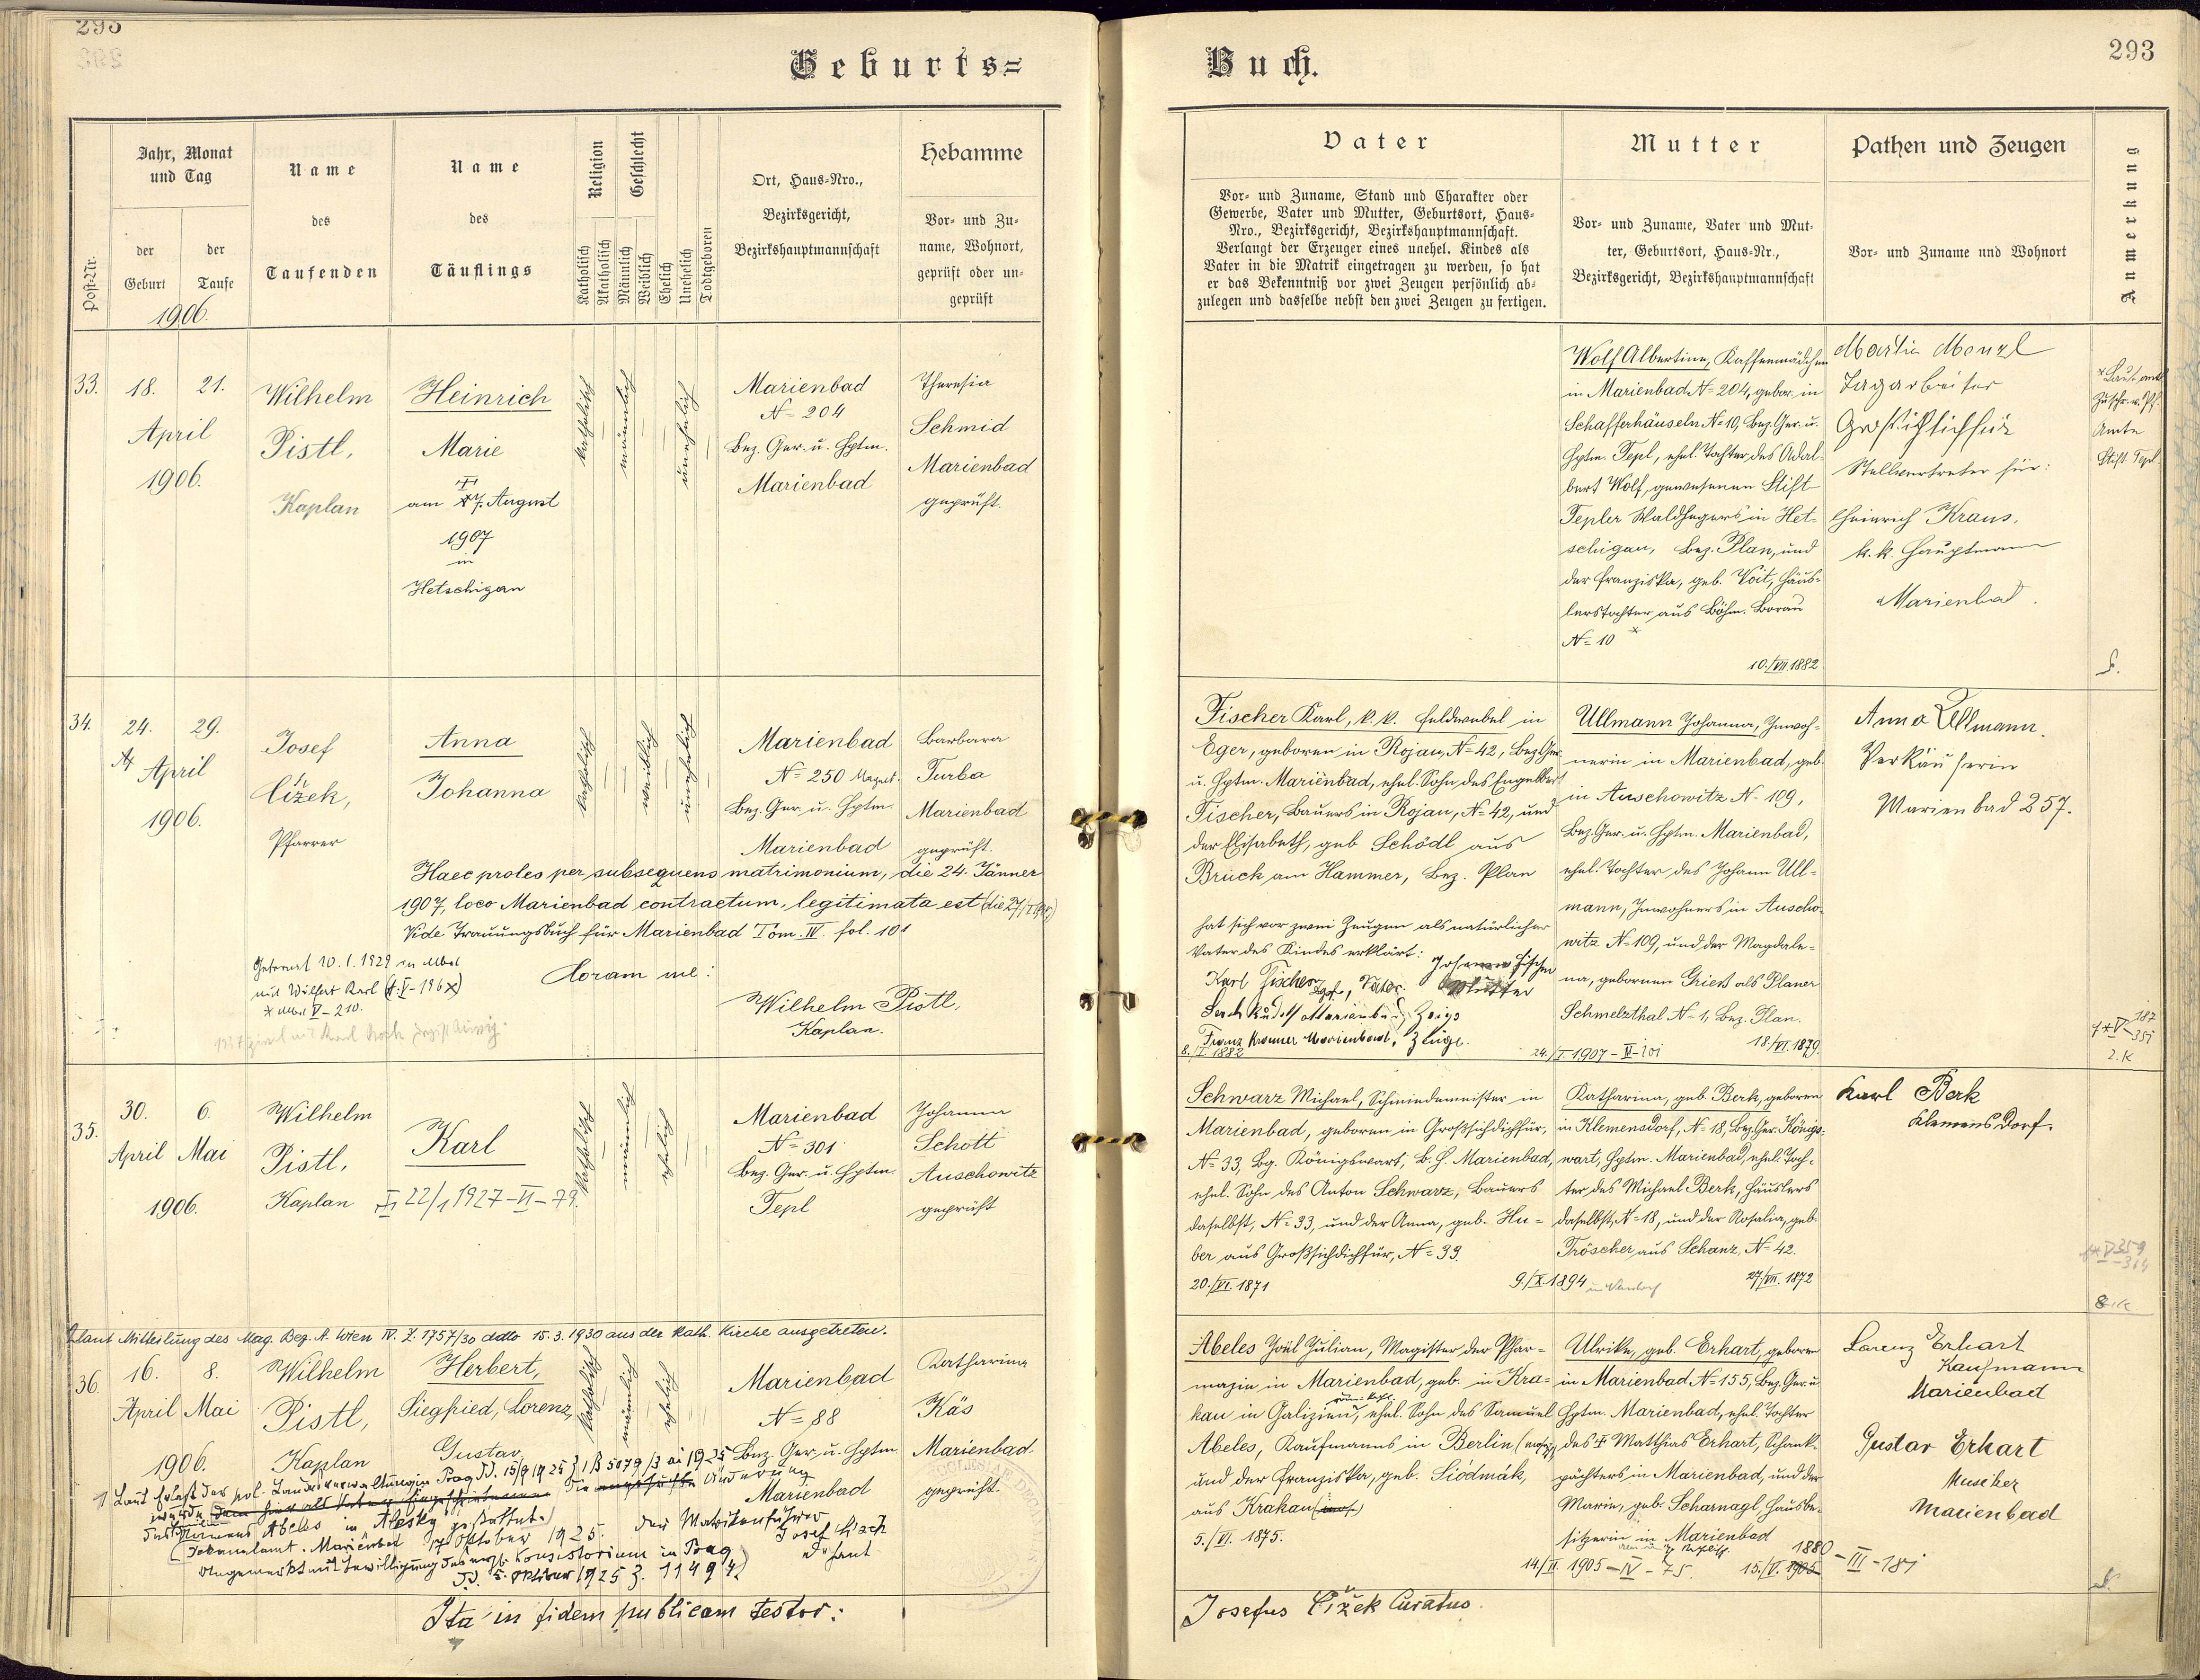 293
Geburts=
Jahr, Monat
und Tag
Name
Name
Religion
Geschlecht
Hebamme
Ort, Haus-Nro.,
des
des
Bezirksgericht,
Vor- und Zu-
der
der
name, Wohnort,
Bezirkshauptmannschaft
Post-Nr.
Geburt
Taufe
Taufenden
Täuflings
Katholisch
Akatholisch
Männlich
Weiblich
Ehelich
Unehelich
Todtgeboren
geprüft oder un-
geprüft
1906.
33.
18.
21.
April
1906.
Wilhelm
Pistl,
Kaplan
Heinrich
Marie
am 17. August
1907
in
Hetschigau
katholisch
männlich
unehelich
Marienbad
N= 204
Bez. Ger. u. Hptm.
Marienbad
Theresia
Schmid
Marienbad
geprüft.
34.
24.
29.
April
1906.
Josef
Čížek,
Pfarrer
Anna
Johanna
katholisch
weiblich
unehelich
Marienbad
N= 250
Bez. Ger. u. Hptm.
Marienbad
Barbara
Turba
Marienbad
geprüft.
Haec proles per subsequens matrimonium, die 24. Jänner
1907, loco Marienbad contractum, legitimata est
Vide Trauungsbuch für Marienbad Tom. IV. fol. 101
Getraut 10.1.1929 in Mbad
mit Wilfert Karl
V-210.
Coram me:
Wilhelm Pistl,
Kaplan.
35.
30.
6.
April
Mai
1906.
Wilhelm
Pistl,
Kaplan
Karl
22/1 1927-VI-79.
katholisch
männlich
ehelich
Marienbad
N= 301
Bez. Ger. u. Hptm.
Tepl
Johanna
Schott
Auschowitz
geprüft
laut Mitteilung des Mag. Bez. A. Wien IV. Z. 1757/30 ddto 15.3.1930 aus der kath. Kirche ausgetreten.
36.
16.
8.
April
Mai
1906.
Wilhelm
Pistl,
Kaplan
Herbert,
Siegfried, Lorenz,
Gustav
katholisch
männlich
ehelich
Marienbad
N= 88
Bez. Ger. u. Hptm.
Marienbad
Katharina
Käs
Marienbad
geprüft.
Laut Erlaß der pol. Landesverwaltung in Prag
wurde die Änderung
des Namens Abeles in Alesky gestattet.
Dekanalamt Marienbad 17 Oktober 1925. Der Matrikenführer
Angemerkt mit Bewilligung des Konsistorium in Prag
5. Oktober 1925 Z. 11494
Ita in fidem publicam testor:
Buch.
293
Vater
Mutter
Pathen und Zeugen
Anmerkung
Vor- und Zuname, Stand und Charakter oder
Gewerbe, Vater und Mutter, Geburtsort, Haus-
Nro., Bezirksgericht, Bezirkshauptmannschaft.
Verlangt der Erzeuger eines unehel. Kindes als
Vater in die Matrik eingetragen zu werden, so hat
er das Bekenntniß vor zwei Zeugen persönlich ab-
zulegen und dasselbe nebst den zwei Zeugen zu fertigen.
Vor- und Zuname, Vater und Mut-
ter, Geburtsort, Haus-Nr.,
Bezirksgericht, Bezirkshauptmannschaft
Vor- und Zuname und Wohnort
Wolf Albertine, Kaffeemädchen
in Marienbad N= 204, gebor. in
Schafferhäuseln N= 10, Bez. Ger. u.
Hptm. Tepl, ehel. Tochter des Adal-
bert Wolf, gewesenen Stift
Tepler Waldhegers in Het-
schigau, Bez. Plan, und
der Franziska, geb. Voit, Häus-
lerstochter aus Böhm. Borau
N= 10
10./VII.1882
Martin Menzl
Tagarbeiter
Großsichdichfür
Stellvertreter für:
Heinrich Kraus,
k.k. Hauptmann
Marienbad.
Amte
Stift Tepl
Fischer Karl, k.k. Feldwebel in
Eger, geboren in Rojau, N= 42, Bez. Ger.
u. Hptm. Marienbad, ehel. Sohn des Engelbert
Fischer, Bauers in Rojau, N= 42, und
der Elisabeth, geb. Schödl aus
Bruck am Hammer, Bez. Plan
hat sich vor zwei Zeugen als natürlicher
Vater des Kindes erklärt:
Johanna Fischer
Mutter
Karl Fischer, Vater.
Franz Kramer Marienbad, Zeuge.
8./I. 1882
24./I 1907-IV-101
Ullmann Johanna, Inwoh-
nerin in Marienbad, geb.
in Auschowitz N- 109,
Bez. Ger. u. Hptm. Marienbad,
ehel. Tochter des Johann Ull-
mann, Inwohners in Auscho-
witz N= 109, und der Magdale-
na, gebornen Grieß als Planer
Schmelzthal N= 1, Bez. Plan.
18./VI. 1879.
Anna Ullmann.
Verkäuferin
Marienbad 257.
Schwarz Michael, Schmiedemeister in
Marienbad, geboren in Großsichdichfür,
N= 33, Bg. Königswart, B.H. Marienbad,
ehel. Sohn des Anton Schwarz, Bauers
daselbst, N= 33, und der Anna, geb. Hu-
ber aus Großsichdichfür, N= 39.
20./VI. 1871
9./X.1894
Katharina, geb. Berk, geboren
in Klemensdorf, N= 18, Bez. Ger. Königs-
wart, Hptm. Marienbad, ehel. Toch-
ter des Michael Berk, Häuslers
daselbst, N= 18, und der Rosalia, geb.
Tröscher aus Schanz, N= 42.
27./VII. 1872
Karl Berk
Klemensdorf.
Abeles Joël Julian, Magister der Phar-
mazie in Marienbad, geb. in Kra-
kau in Galizien, ehel. Sohn des Samuel
Abeles, Kaufmanns in Berlin (mosaisch)
und der Franziska, geb. Siódmák,
aus Krakau
5./VI. 1875.
14./II. 1905-IV-75.
Ulrike, geb. Erhart, geboren
in Marienbad N= 155, Bez. Ger. u.
Hptm. Marienbad, ehel. Tochter
des † Matthias Erhart, Schank-
pächters in Marienbad, und der
Marie, geb. Scharnagl, Hausbe-
sitzerin in Marienbad
1880-III-181
15./V. 1905
Lorenz Erhart
Kaufmann
Marienbad
Gustav Erhart
Musiker
Marienbad
Josefus Čížek Curatus.